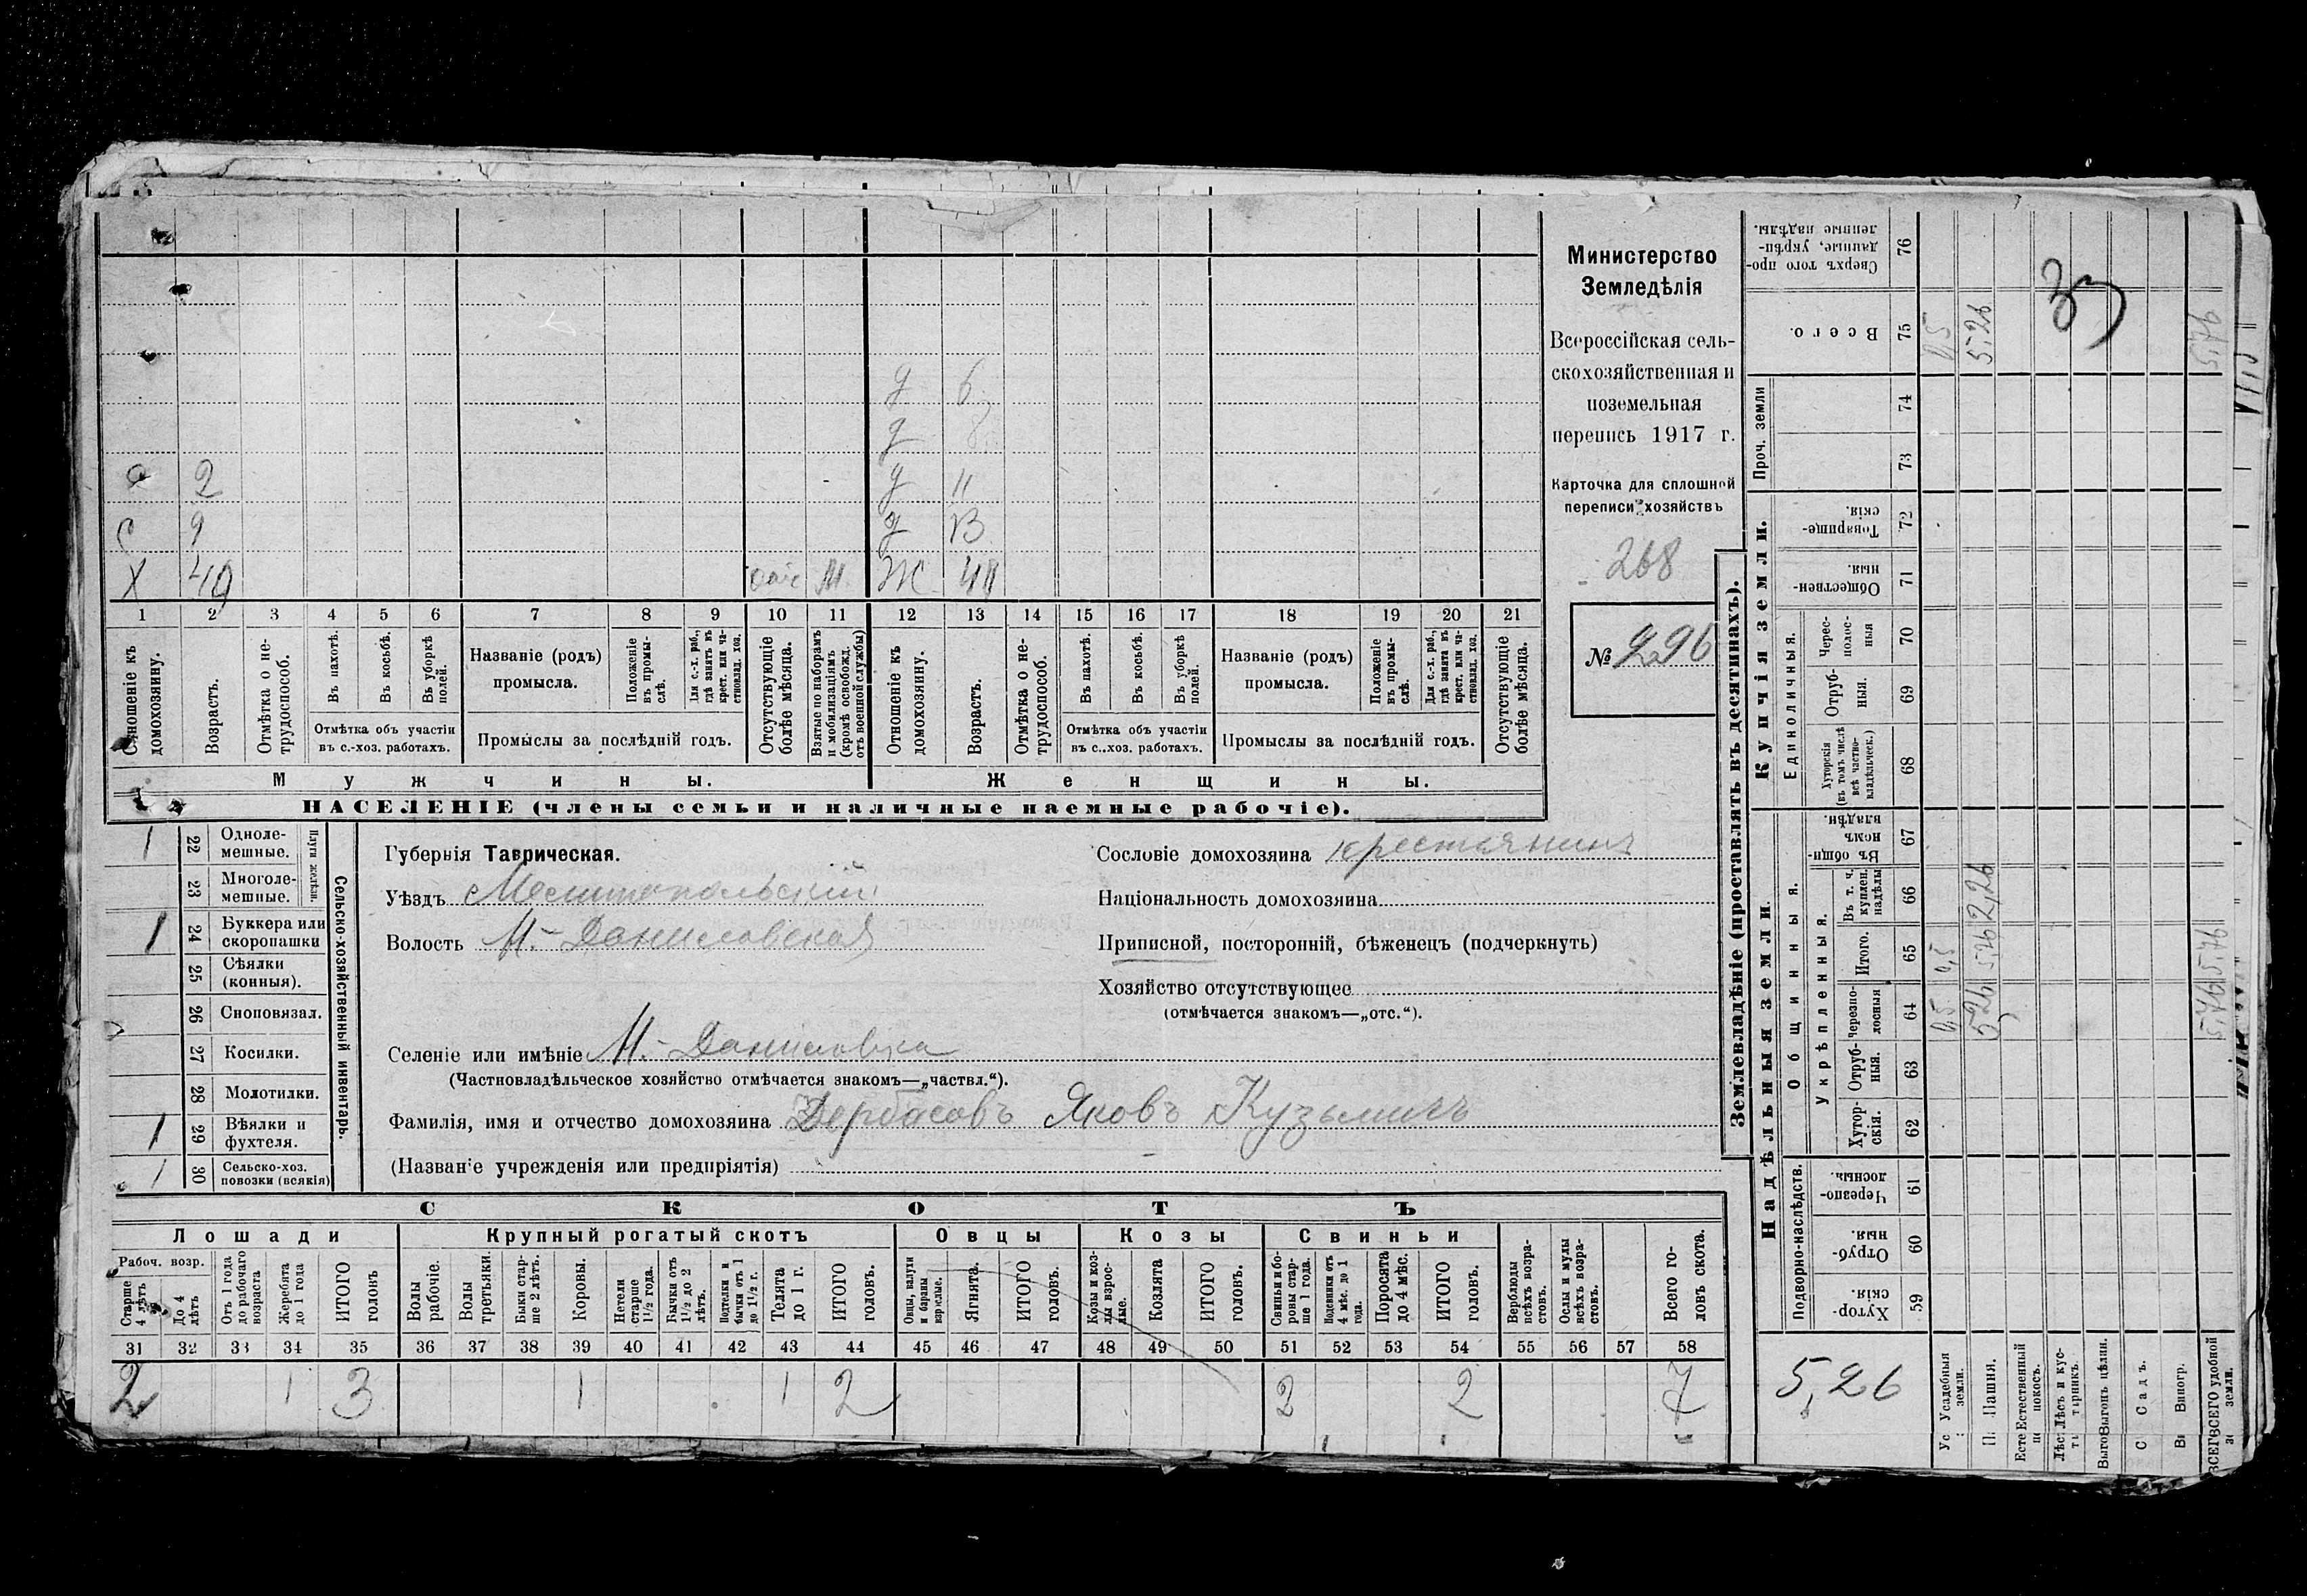 Министерство
Земледѣлія
Всероссійская сель-
скохозяйственная и
поземельная
перепись 1917 г.
Карточка для сплошной
переписи хозяйствъ
268
№ 296
д 6
д
с 2 д 11
с 9 д 13
Х 49 М Ж 41
1 2 3 4 5 6 7 8 9 10 11 12 13 14 15 16 17 18 19 20 21
Отношеніе къ домохозяину.
Возрастъ.
Отмѣтка о нетрудоспособ.
Въ пахотѣ.
Въ косьбѣ.
Въ уборкѣ полей.
Отмѣтка объ участіи
въ с.-хоз. работахъ.
Названіе (родъ)
промысла.
Положеніе въ промы-слѣ.
Для с.-х. раб., гдѣ занятъ въ крест. или ча-стновлад. хоз.
Промыслы за послѣдній годъ.
Отсутствующіе болѣе мѣсяца.
Взятые по наборамъ и мобилизаціямъ (кромѣ освобожд. отъ военной службы)
Отношеніе къ домохозяину.
Возрастъ.
Отмѣтка о не-трудоспособ.
Въ пахотѣ.
Въ косьбѣ.
Въ уборкѣ полей.
Отмѣтка объ участіи
въ с.-хоз. работахъ.
Названіе (родъ)
промысла.
Положеніе въ промы-слѣ.
Для с.-х. раб., гдѣ занята въ крест. или ча-стновлад. хоз.
Промыслы за послѣдній годъ.
Отсутствующіе болѣе мѣсяца.
Мужчины. Женщины.
НАСЕЛЕНІЕ (члены семьи и наличные наемные рабочіе).
1 22 Одноле-мешные.
23 Многоле-мешные.
Плуги желѣзн.
1 24 Буккера или скоропашки
25 Сѣялки (конныя).
26 Сноповязал.
27 Косилки.
28 Молотилки.
1 29 Вѣялки и фухтеля.
1 30 Сельско-хоз. повозки (всякія)
Сельско-хозяйственный инвентарь.
Губернія Таврическая.
Уѣздъ Мелитопольскій
Волость М.-Даниловская
Селеніе или имѣніе М.-Даниловка
(Частновладѣльческое хозяйство отмѣчается знакомъ—„частвл.“).
Фамилія, имя и отчество домохозяина Дербасовъ Яковъ Кузьмичъ
(Названіе учрежденія или предпріятія)
Сословіе домохозяина крестьянинъ
Національность домохозяина
Приписной, посторонній, бѣженецъ (подчеркнуть)
Хозяйство отсутствующее
(отмѣчается знакомъ—„отс.“).
СКОТЪ
Лошади Крупный рогатый скотъ Овцы Козы Свиньи
Рабоч. возр.
Старше 4 лѣтъ
До 4 лѣтъ
Отъ 1 года до рабочаго возраста
Жеребята до 1 года
ИТОГО головъ
Волы рабочіе.
Волы третьяки.
Быки стар-ше 2 лѣтъ.
Коровы.
Нетели старше 1½ года.
Бычки отъ 1½ до 2 лѣтъ.
Подтелки и бычки отъ 1 до 1½ г.
Телята до 1 г.
ИТОГО головъ.
Овцы, валухи и бараны взрослые.
Ягнята.
ИТОГО головъ.
Козы и коз-лы взрос-лые.
Козлята
ИТОГО головъ.
Свиньи и бо-ровы стар-ше 1 года.
Подсвинки отъ 4 мѣс. до 1 года.
Поросята до 4 мѣс.
ИТОГО головъ.
Верблюды всѣхъ возра-стовъ.
Ослы и мулы всѣхъ возра-стовъ.
Всего го-ловъ скота.
31 32 33 34 35 36 37 38 39 40 41 42 43 44 45 46 47 48 49 50 51 52 53 54 55 56 57 58
2 1 3 1 1 2 2 2 7
Землевладѣніе (проставлять въ десятинахъ).
Надѣльныя земли.
Купчія земли.
Проч. земли
Подворно-наслѣдств.
Общинныя.
Укрѣпленныя.
Единоличныя.
Хутор-скія. 59
Отруб-ныя. 60
Черезпо-лосныя. 61
Хутор-скія. 62
Отруб-ныя. 63
Черезпо-лосныя 64
Итого. 65
Въ т. ч. куплен. надѣлы 66
Въ общи-номъ владѣн. 67
Хуторскія (въ томъ числѣ всѣ частно-владѣльческ.) 68
Отруб-ныя. 69
Черес-полос-ныя 70
Обществен-ныя. 71
Товарище-скія. 72
73
74
Всего. 75
Сверхъ того про-данные, укрѣп-ленные надѣлы. 76
5,26
Усадебныя земли. 0,5 0,5 0,5
Пашня. 5,26 5,26 2,26 5,26
Естественный покосъ.
Лѣсъ и кус-тарникъ.
Выгонъ цѣлин.
Садъ.
Виногр.
ВСЕГО удобной земли. 5,76 5,76 5,76